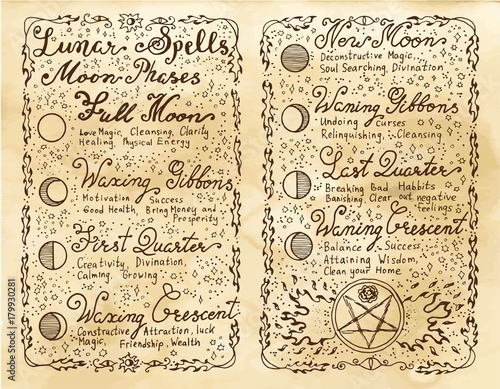 Lunar Spells
Moon Phases
Full Moon
Love Magic, Cleansing, Clarity
Healing, Physical Energy
Waxing Gibbons
Motivation Success
Good Health, Bring Money and
Prosperity
First Quarter
Creativity Divination,
Calming, Growing
Waxing Crescent
Constructive Attration, luck
Magic, Friendship, Wealth
New Moon
Deconstructive Magic,
Soul Searching, Divination
Waning Gibbons
Undoing Curses
Relinquishing, Cleansing
Last Quarter
Breaking Bad Habbits
Banishing, Clear out negative
feelings
Waning Crescent
Balance Success
Attaining Wisdom,
Clean your Home
179930281